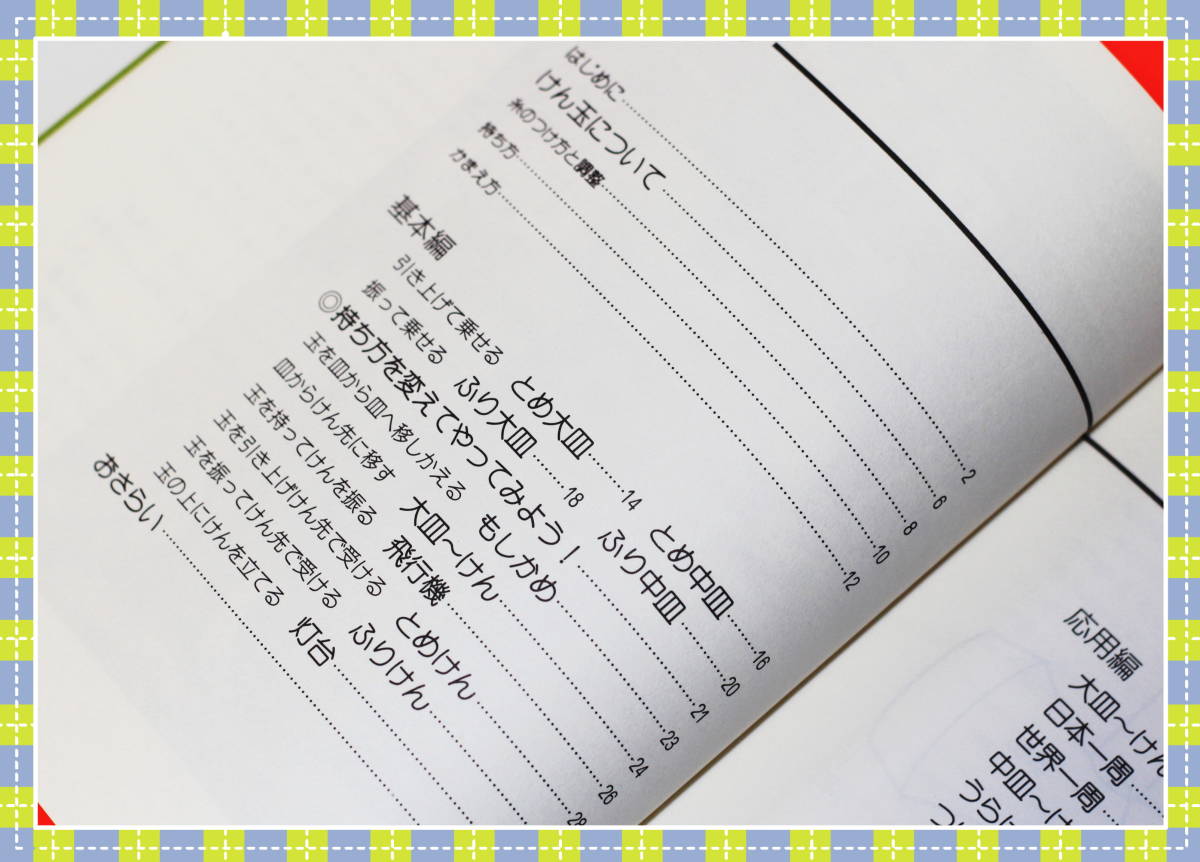 はじめに……2
けん玉について……6
糸のつけ方と調整……8
持ち方……10
かまえ方……12
基本編
引き上げて乗せる　とめ大皿……14　とめ中皿……16
振って乗せる　ふり大皿……18　ふり中皿……20
◎持ち方を変えてやってみよう！……21
玉を皿から皿へ移しかえる　もしかめ……23
皿からけん先に移す　大皿～けん……24
玉を持ってけんを振る　飛行機……26
玉を引き上げけん先で受ける　とめけん……28
玉を振ってけん先で受ける　ふりけん……
玉の上にけんを立てる　灯台……
おさらい……
応用編
大皿～けん
日本一周……
世界一周……
中皿～け
うら